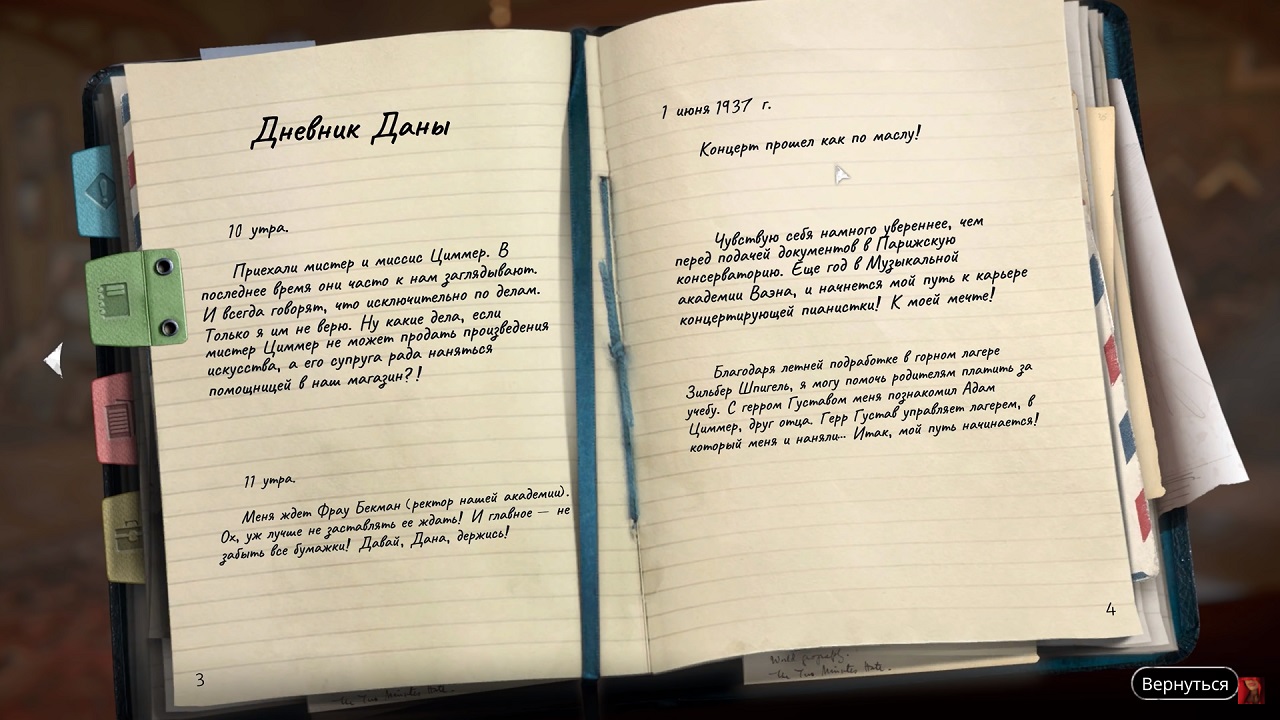 Дневник Даны
10 утра.
Приехали мистер и миссис Циммер. В
последнее время они часто к нам заглядывают.
И всегда говорят, что исключительно по делам.
Только я им не верю. Ну какие дела, если
мистер Циммер не может продать произведения
искусства, а его супруга рада наняться
помощницей в наш магазин?!
11 утра.
Меня ждет Фрау Бекман (ректор нашей академии).
Ох, уж лучше не заставлять ее ждать! И главное — не
забыть все бумажки! Давай, Дана, держись!
3
1 июня 1937 г.
Концерт прошел как по маслу!
Чувствую себя намного увереннее, чем
перед подачей документов в Парижскую
консерваторию. Еще год в Музыкальной
академии Ваэна, и начнется мой путь к карьере
концертирующей пианистки! К моей мечте!
Благодаря летней подработке в горном лагере
Зильбер Шпигель, я могу помочь родителям платить за
учебу. С герром Густавом меня познакомил Адам
Циммер, друг отца. Герр Густав управляет лагерем, в
который меня и наняли... Итак, мой путь начинается!
4
Two Minutes Hate.
Two Minutes Hate.
Вернуться